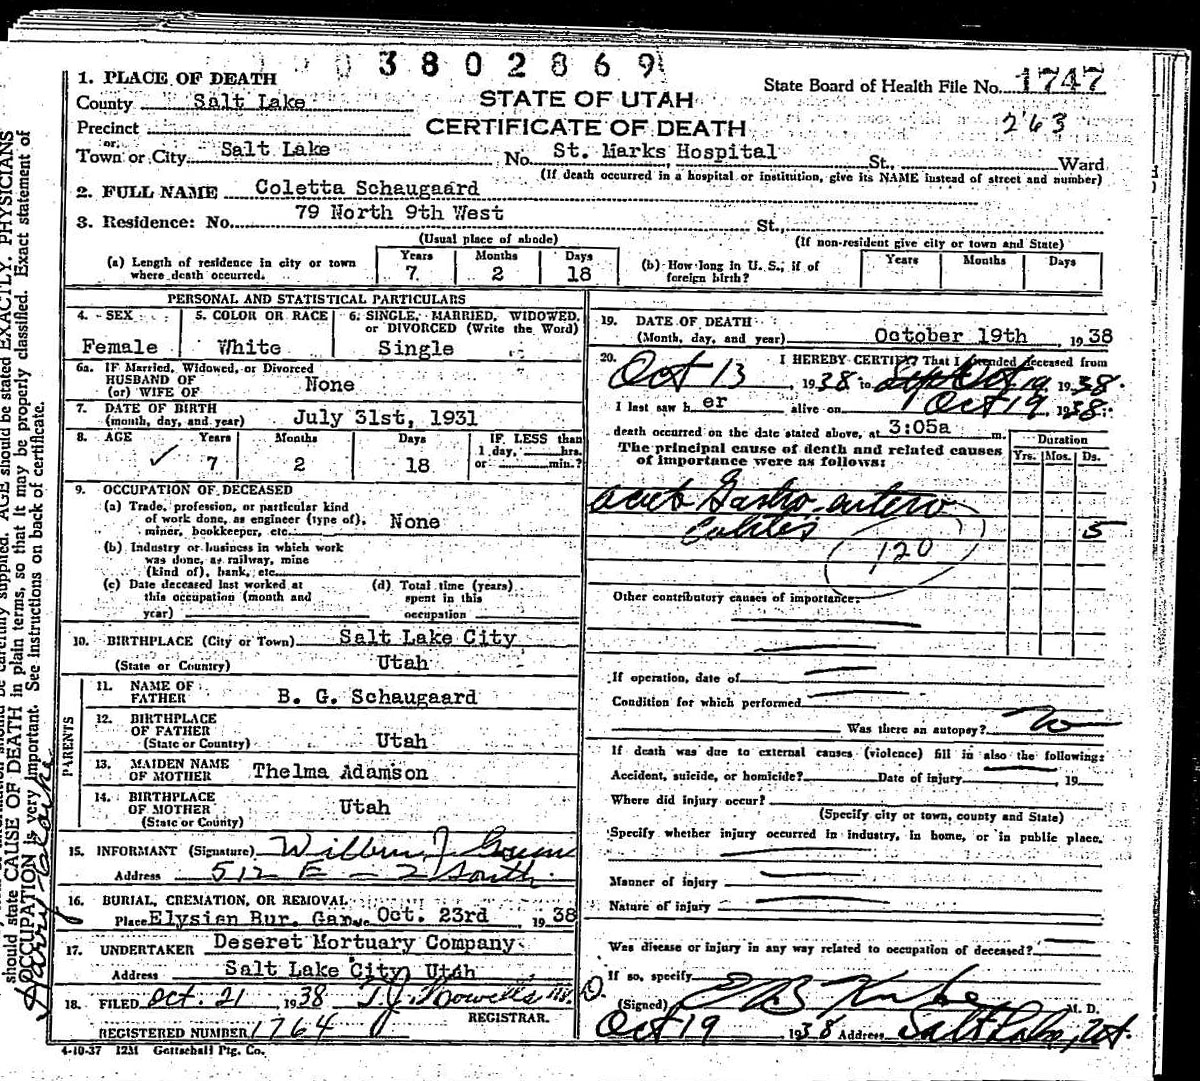 3802869
1. PLACE OF DEATH
State Board of Health File No. 1747
County Salt Lake
STATE OF UTAH
263
Precinct
CERTIFICATE OF DEATH
or
Town or City Salt Lake No. St. Marks Hospital St., Ward
(If death occurred in a hospital or institution, give its NAME instead of street and number)
2. FULL NAME Coletta Schaugaard
3. Residence: No. 79 North 9th West St.,
(Usual place of abode) (If non-resident give city or town and State)
(a) Length of residence in city or town where death occurred. Years 7 Months 2 Days 18
(b) How long in U. S., if of foreign birth? Years Months Days
PERSONAL AND STATISTICAL PARTICULARS
4. SEX 5. COLOR OR RACE 6. SINGLE, MARRIED, WIDOWED,
or DIVORCED (Write the Word)
Female White Single
6a. IF Married, Widowed, or Divorced
HUSBAND OF
(or) WIFE OF None
7. DATE OF BIRTH
(month, day, and year) July 31st, 1931
8. AGE Years Months Days IF LESS than
1 day, hrs.
7 2 18 or min.?
9. OCCUPATION OF DECEASED
(a) Trade, profession, or particular kind
of work done, as engineer (type of),
miner, bookkeeper, etc. None
(b) Industry or business in which work
was done, as railway, mine
(kind of), bank, etc.
(c) Date deceased last worked at
this occupation (month and
year)
(d) Total time (years)
spent in this
occupation
10. BIRTHPLACE (City or Town) Salt Lake City
(State or Country) Utah
PARENTS
11. NAME OF
FATHER B. G. Schaugaard
12. BIRTHPLACE
OF FATHER
(State or Country) Utah
13. MAIDEN NAME
OF MOTHER Thelma Adamson
14. BIRTHPLACE
OF MOTHER Utah
(State or County)
15. INFORMANT (Signature) Wilbur J
Address 512 E - 2 South
16. BURIAL, CREMATION, OR REMOVAL
Place Elysian Bur. Gar. Date Oct. 23rd 1938
17. UNDERTAKER Deseret Mortuary Company
Address Salt Lake City, Utah
18. FILED Oct. 21 1938 T. J. Howells M. D.
REGISTRAR.
REGISTERED NUMBER 1764
4-10-37 1231 Gottschall Ptg. Co.
19. DATE OF DEATH
(Month, day, and year) October 19th, 1938
20. I HEREBY CERTIFY That I attended deceased from
Oct 13, 1938 to Oct 19, 1938.
I last saw her alive on Oct 19 1938.
death occurred on the date stated above, at 3:05a m.
The principal cause of death and related causes
of importance were as follows:
Duration
Yrs. Mos. Ds.
Gastro-entero
Colitis 5
120
Other contributory causes of importance:
If operation, date of
Condition for which performed
Was there an autopsy? No
If death was due to external causes (violence) fill in also the following:
Accident, suicide, or homicide? Date of injury 19
Where did injury occur?
(Specify city or town, county and State)
Specify whether injury occurred in industry, in home, or in public place.
Manner of injury
Nature of injury
Was disease or injury in any way related to occupation of deceased?
If so, specify
(Signed) M. D.
Oct 19 1938 Address Salt Lake, Ut.
AGE should be stated EXACTLY. PHYSICIANS
should state CAUSE OF DEATH in plain terms, so that it may be properly classified. Exact statement of
OCCUPATION is very important. See instructions on back of certificate.